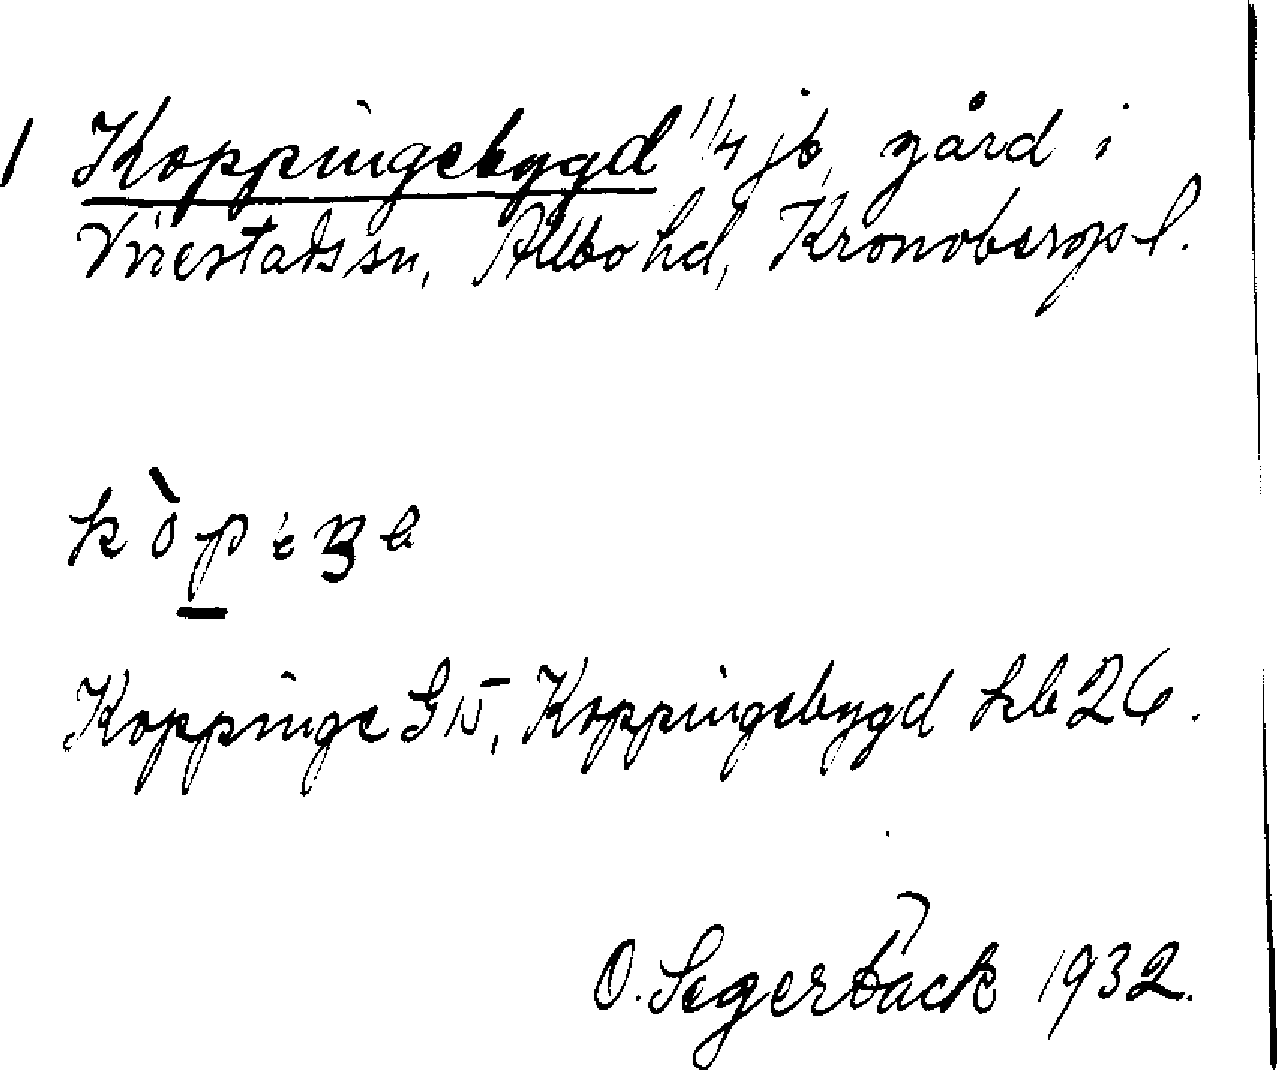 1 Koppingebygd 1 1/4 jb, gård i
Virestads sn, Allbo hd, Kronobergs l.
Koppinge GV, Koppingebygd hb 26.
O. Segerbäck 1932.